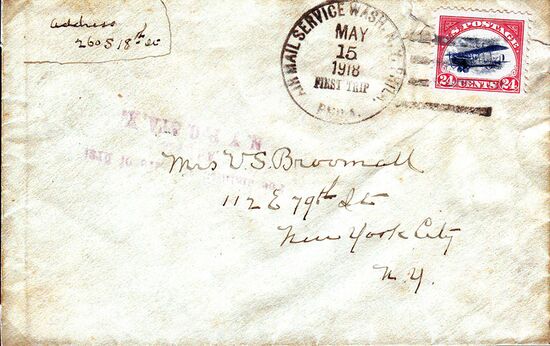 address
260 S 18th St
AIR MAIL SERVICE WASH. N.Y. PHILA.
MAY
15
1918
FIRST TRIP
PHILA.
U.S. POSTAGE
24 CENTS 24
Mrs V. S. Broomall
112 E 79th St
New York City
N.Y.